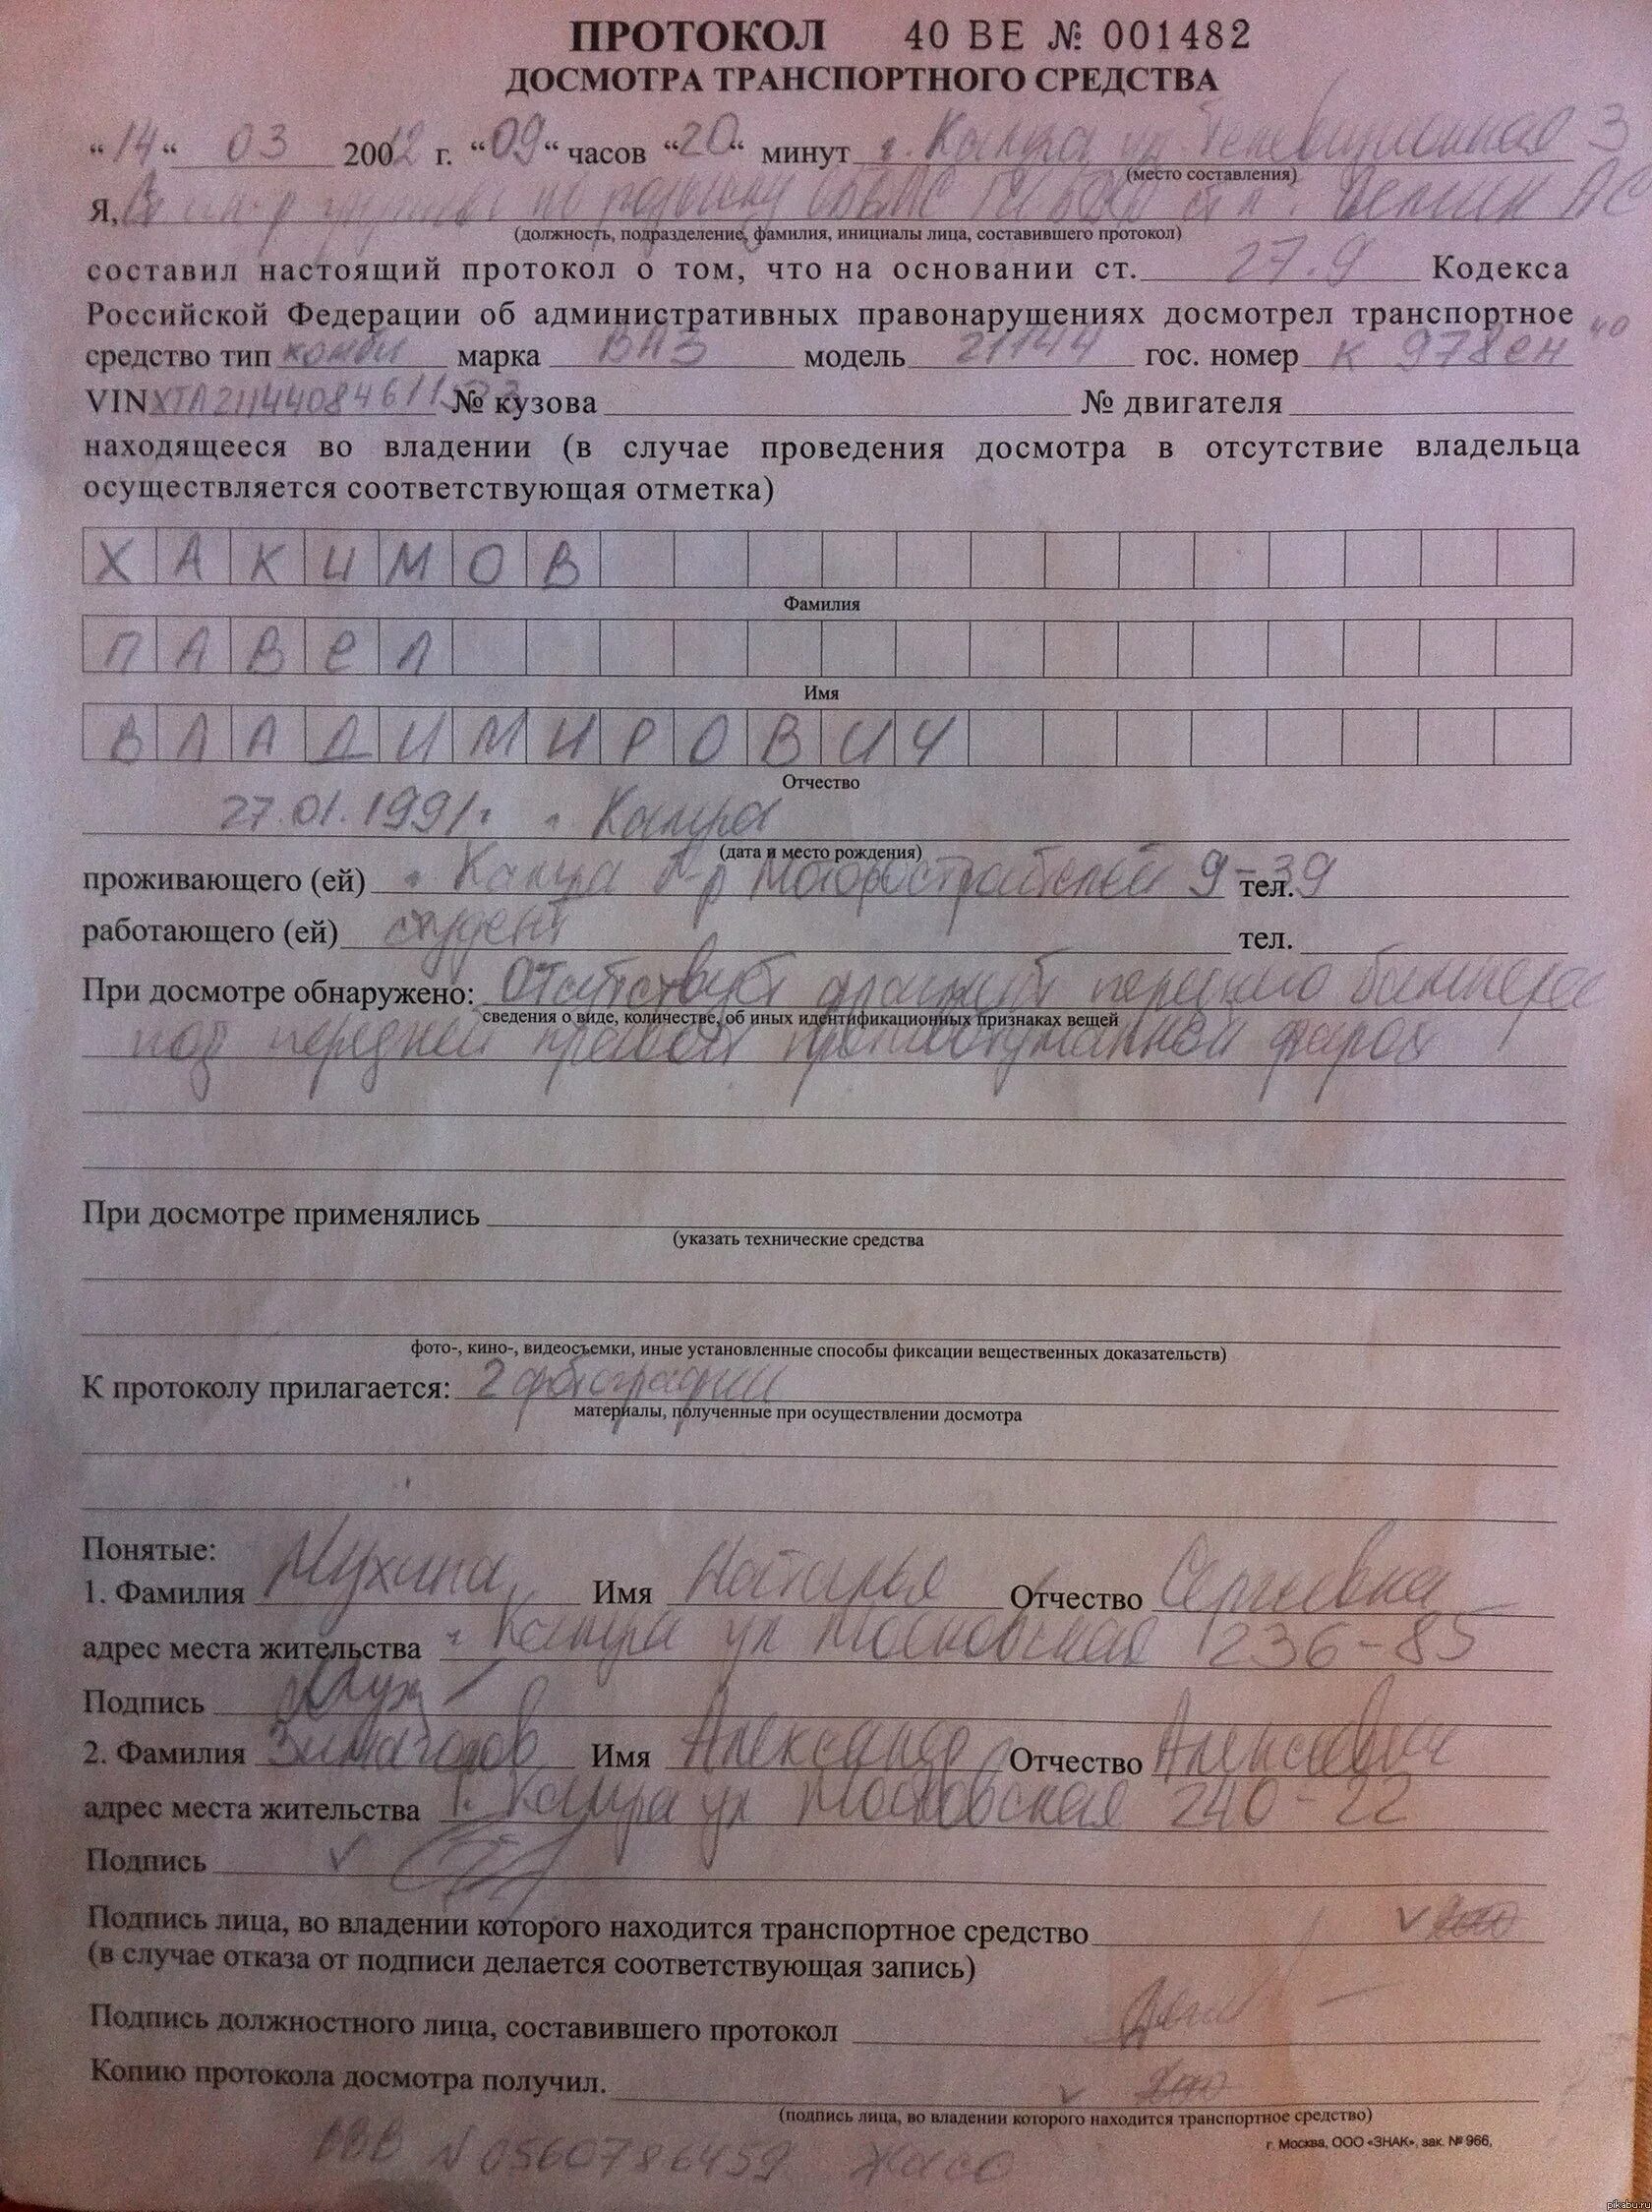 ПРОТОКОЛ 40 ВЕ № 001482
ДОСМОТРА ТРАНСПОРТНОГО СРЕДСТВА
“14“ 03 2002 г. “09“ часов “20“ минут г. Калуга ул. 3
(место составления)
Я, по розыску
(должность, подразделение, фамилия, инициалы лица, составившего протокол)
составил настоящий протокол о том, что на основании ст. 27.9 Кодекса
Российской Федерации об административных правонарушениях досмотрел транспортное
средство тип комби марка ВАЗ модель 21144 гос. номер К 978 ЕН 40
VIN № кузова № двигателя
находящееся во владении (в случае проведения досмотра в отсутствие владельца
осуществляется соответствующая отметка)
ХАКИМОВ
Фамилия
ПАВЕЛ
Имя
ВЛАДИМИРОВИЧ
Отчество
27.01.1991г. г. Калуга
(дата и место рождения)
проживающего (ей) г. Калуга б-р Моторостроителей 9-39 тел.
работающего (ей) студент тел.
При досмотре обнаружено: Отсутствует фрагмент переднего бампера
сведения о виде, количестве, об иных идентификационных признаках вещей
под передней правой противотуманной фарой
При досмотре применялись
(указать технические средства
фото-, кино-, видеосъемки, иные установленные способы фиксации вещественных доказательств)
К протоколу прилагается: 2 фотографии
материалы, полученные при осуществлении досмотра
Понятые:
1. Фамилия Мухина Имя Наталья Отчество Сергеевна
адрес места жительства г. Калуга ул Московская 236-85
Подпись
2. Фамилия Имя Александр Отчество Алексеевич
адрес места жительства г. Калуга ул Московская 240-22
Подпись
Подпись лица, во владении которого находится транспортное средство
(в случае отказа от подписи делается соответствующая запись)
Подпись должностного лица, составившего протокол
Копию протокола досмотра получил.
(подпись лица, во владении которого находится транспортное средство)
г. Москва, ООО «ЗНАК», зак. № 966,
ВВВ N 0560786459
pikabu.ru